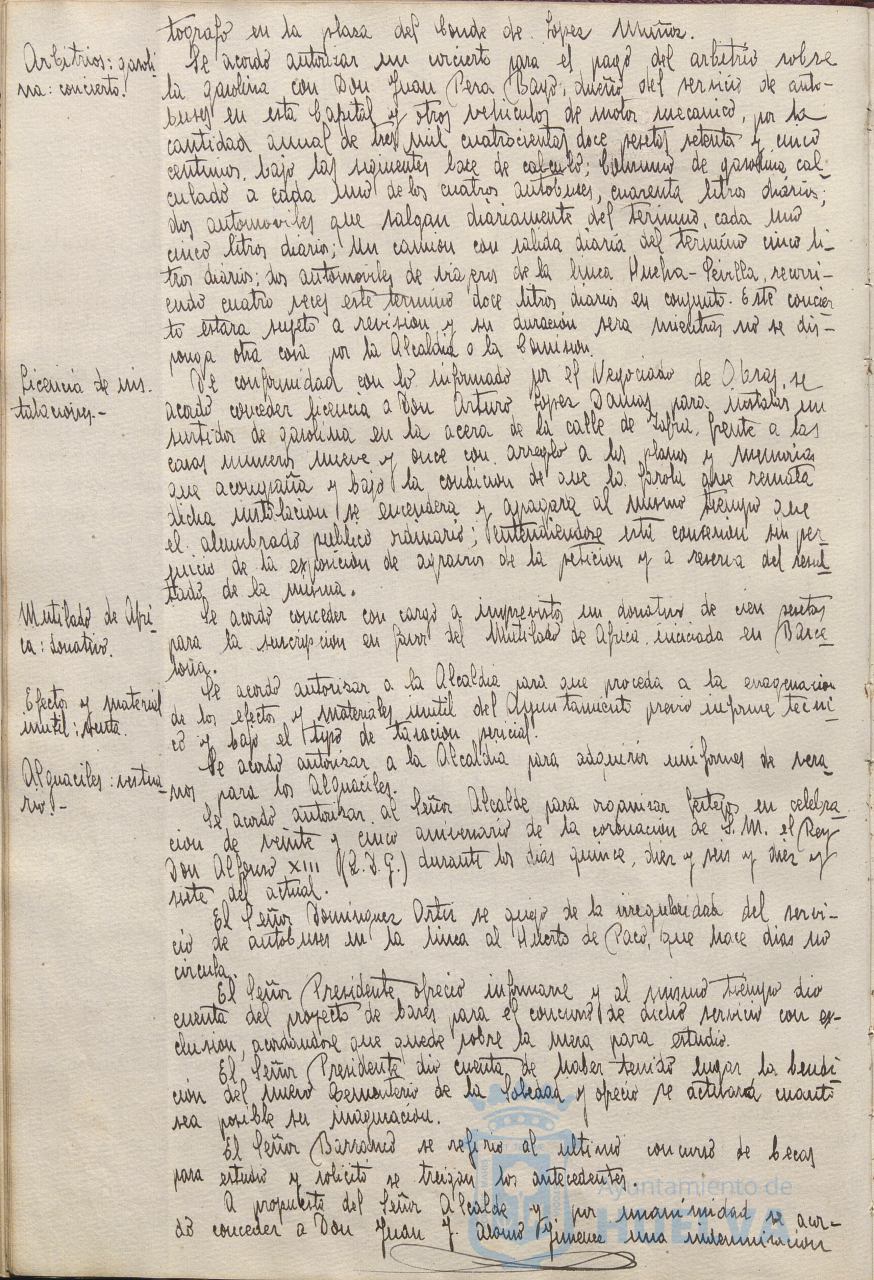 tografo en la plaza del Conde de Lopez Muñoz.
Arbitrios: gasoli-
na: concierto.
Se acordo autorizar un concierto para el pago del arbitrio sobre
la gasolina con Don Juan Pera Bayo, dueño del servicio de auto-
buses en esta Capital y otros vehiculos de motor mecanico, por la
cantidad anual de tres mil cuatrocientas doce pesetas setenta y cinco
centimos, bajo las siguientes base de calculo; Consumo de gasolina cal-
culado a cada uno de los cuatros autobuses, cuarenta litros diarios;
dos automoviles que salgan diariamente del termino, cada uno
cinco litros diario; un camion con salida diaria del termino cinco li-
tros diarios; dos automoviles de viageros de la linea Huelva-Sevilla, recorri-
endo cuatro veces este termino doce litros diarios en conjunto. Este concier-
to estara sujeto a revision y su duracion sera mientras no se dis-
ponga otra cosa por la Alcaldia o la Comision.
Licencia de ins-
talaciones.-
De conformidad con lo informado por el Negociado de Obras, se
acordo conceder licencia a Don Arturo Lopez Damas para instalar un
surtidor de gasolina en la acera de la calle de Zafra, frente a las
casas numeros nueve y once con arreglo a los planos y memorias
que acompaña y bajo la condicion de que la farola que remata
dicha instalacion se encendera y apagara al mismo tiempo que
el alumbrado publico ordinario; entendiendose esta concesion sin per-
juicio de la exposicion de agravios de la peticion y a reserva del resul-
tado de la misma.
Mutilado de Afri-
ca: donativo.
Se acordo conceder con cargo a imprevistos un donativo de cien pesetas
para la suscripcion en favor del Mutilado de Africa iniciada en Barce-
lona.
Efectos y material
inutil: venta.
Se acordo autorizar a la Alcaldia para que proceda a la enagenacion
de los efectos y materiales inutil del Ayuntamiento previo informe tecni-
co y bajo el tipo de tasacion pericial.
Alguaciles: vestua-
rio.-
Se acordo autorizar a la Alcaldia para adquirir uniformes de vera-
nos para los Alguaciles.
Se acordo autorizar al Señor Alcalde para organizar festejos en celebra-
cion de veinte y cinco aniversario de la coronacion de S.M. el Rey
Don Alfonso XIII (Q.D.G.) durante los dias quince, diez y seis y diez y
siete del actual.
El Señor Dominguez Ortiz se quejo de la irregularidad del servi-
cio de autobuses en la linea al Huerto de Paco, que hace dias no
circula.
El Señor Presidente ofrecio informarse y al mismo tiempo dio
cuenta del proyecto de bases para el concurso de dicho servicio con ex-
clusion, acordandose que quede sobre la mesa para estudio.
El Señor Presidente dio cuenta de haber tenido lugar la bendi-
cion del nuevo Cementerio de la Soledad y ofrecio se activara cuanto
sea posible su inaguracion.
El Señor Barranco se refirio al ultimo concurso de becas
para estudio y solicito se traigan los antecedentes.
A propuesta del Señor Alcalde y por unanimidad se acor-
do conceder a Don Juan J. Alonso Jimenez una indemnizacion
Ayuntamiento de
HUELVA